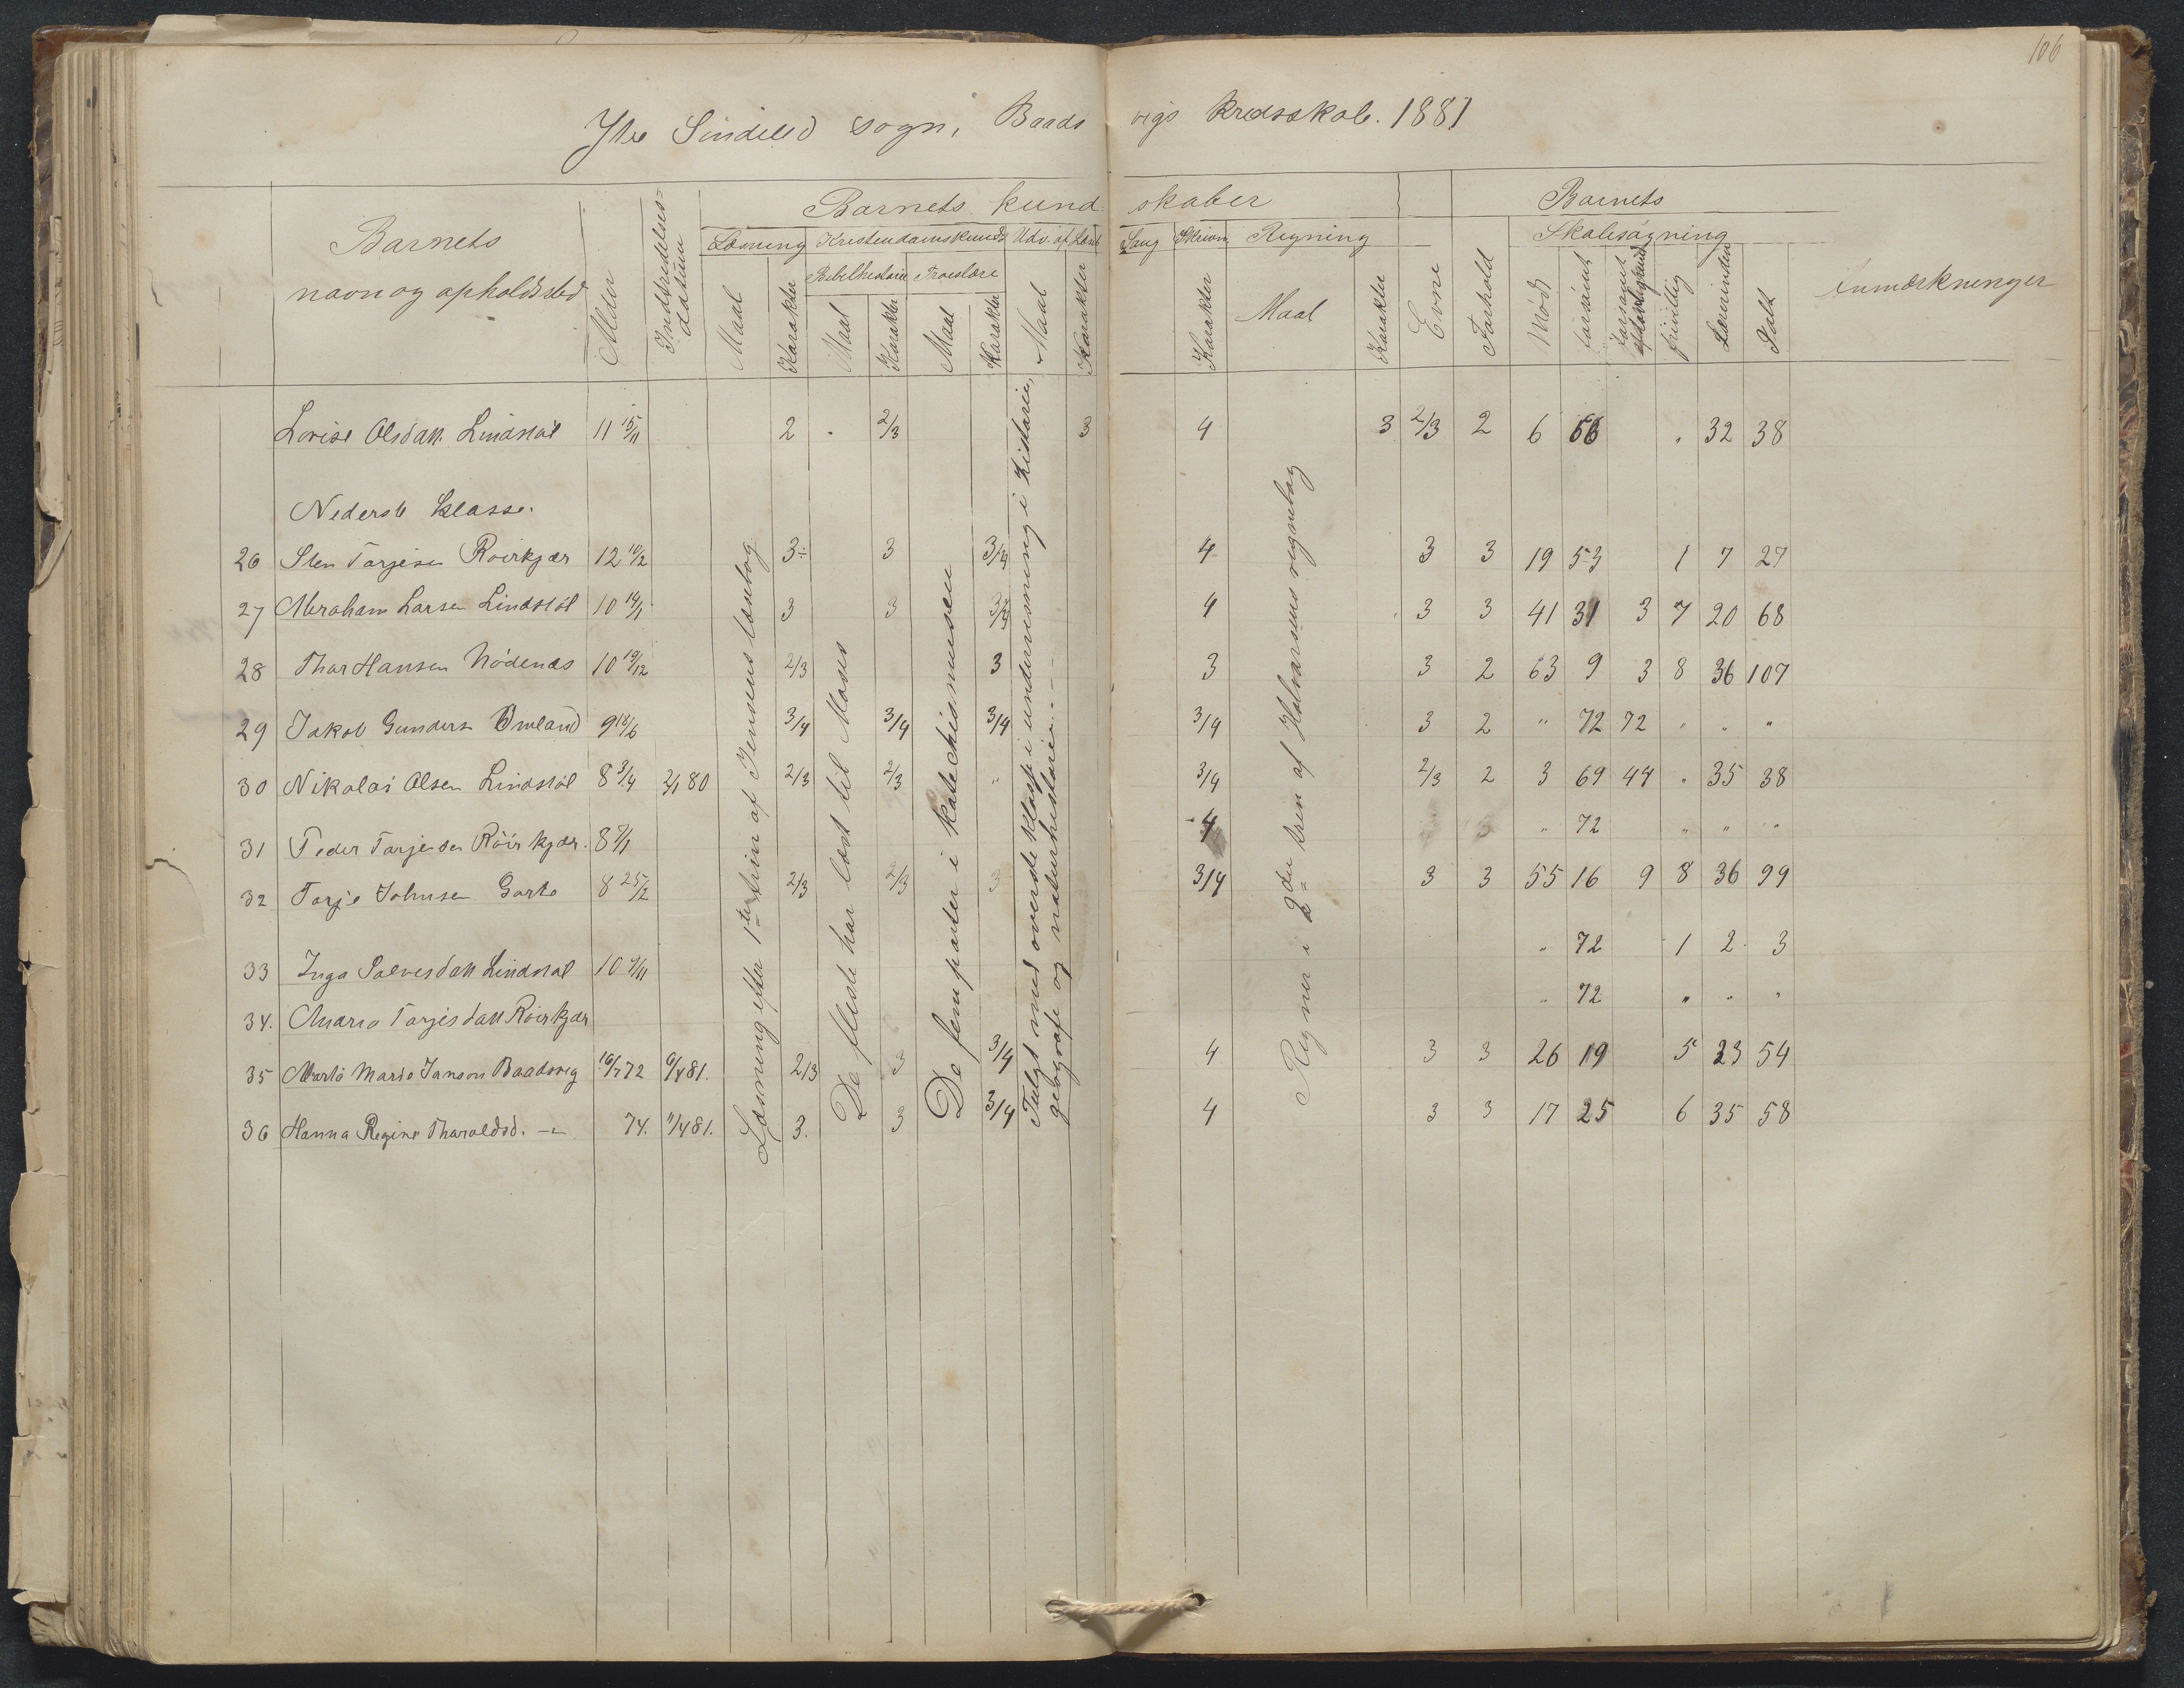 106
Ytre Sindeled sogn, Baadsvigs kredsskole. 1881
Barnets navn og opholdssted
Alder
Indtrædelsesdatum
Barnets kundskaber
Læsning Maal Karakter
Kristendomskundsk
Bibelhistorie Maal Karakter
Troeslære Maal Karakter
Udv. af Læseb Maal Karakter
Sang
Skrivn Karakter
Regning Maal Karakter
Evne
Forhold
Barnets
Skolesøgning
Mødt forsømt forsømt frivillig Lærerinden Ialt
Anmærkninger
Lovise Olsdatt. Lindstøl 11 15/11 2 2/3 3 4 3 2/3 2 6 66 " 32 38
Nederste klasse.
26 Sten Tarjesen Roirkjær 12 10/2 3 3 3/4 4 3 3 19 53 1 7 27
27 Abraham Larsen Lindstöl 10 14/1 3 3 3/4 4 3 3 41 31 3 7 20 68
28 Thor Hansen Nödenes 10 19/12 2/3 3 3 3 2 63 9 3 8 36 107
29 Jakob Gunders Omland 9 18/6 3/4 3/4 3/4 3/4 3 2 " 72 72 " " "
30 Nikolai Olsen Lindstöl 8 3/4 2/1 80 2/3 2/3 " 3/4 2/3 2 3 69 44 " 35 38
31 Peder Tarjesen Röirkjær. 8 7/1 4 3 " 72 " " "
32 Tarje Johnsen Garte 8 25/2 2/3 2/3 3 3/4 3 3 55 16 9 8 36 99
33 Inga Salvesdatt Lindstøl 10 9/11 " 72 1 2 3
34. Maria Tarjesdatt Roirkjær " 72 " " "
35 Marta Marie Janson Baadsvig 16/7 72 6/4 81. 2/3 3 3/4 4 3 3 26 19 5 23 54
36 Hanna Regine Tharaldsd. -"- 74. 11/4 81. 3. 3 3/4 4 3 3 17 25 6 35 58
Læsning efter 1ste trin af Jensens læsebog
De fleste har læst til Moses
De fem parter i katechismusen
Fulgt med øverste klasse i undervisning i historie,
geografi og naturhistorie - - -
Regner i 2det trin af Halvorsens regnebog